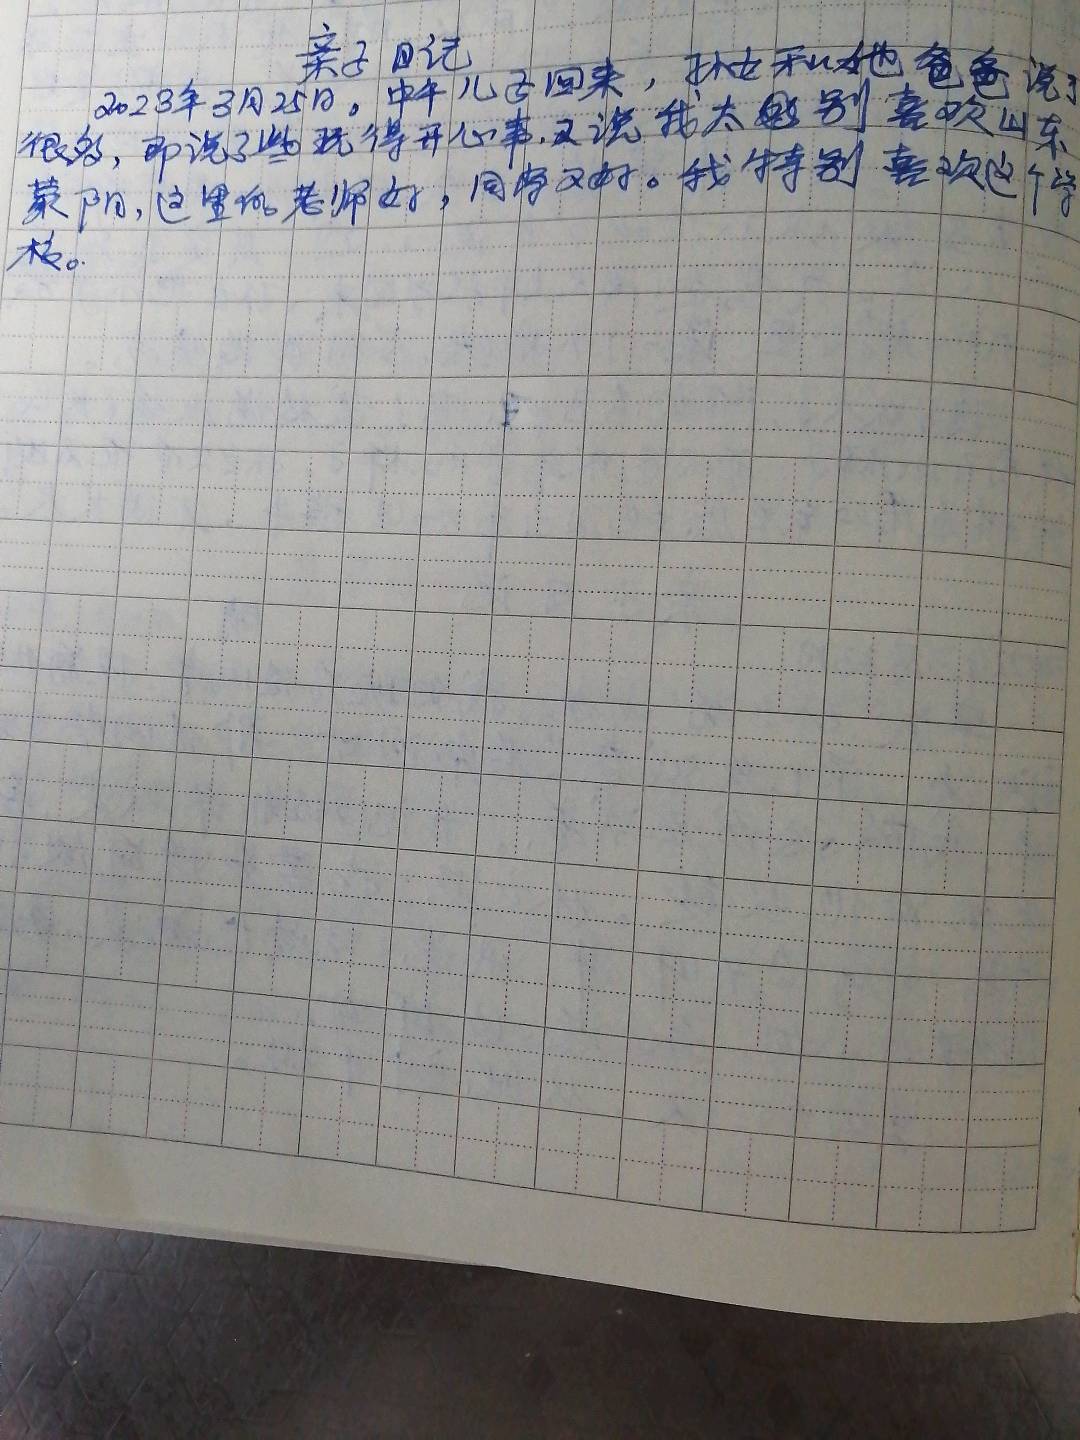 亲子日记
2023年3月25日。中午儿子回来，孙女和他爸爸说了
很多，即说了些玩得开心事.又说我太别喜欢山东
蒙阴，这里的老师好，同学又好。我特别喜欢这个学
校。